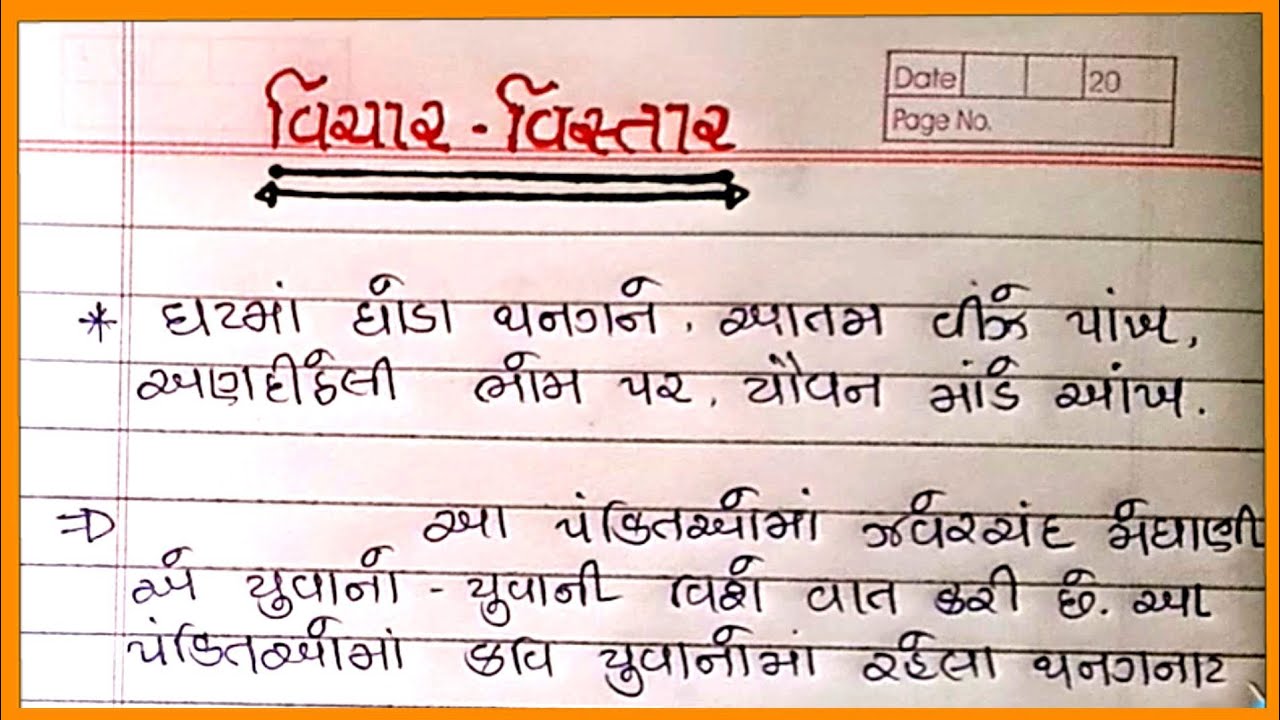 Date 20
Page No.
વિચાર - વિસ્તાર
* ઘટમાં ઘોડા થનગને, આતમ વીંઝે પાંખ,
અણદીઠેલી ભોમ પર, યૌવન માંડે આંખ.
⇒ આ પંકિતઓમાં ઝવેરચંદ મેઘાણી
એ યુવાનો - યુવાની વિશે વાત કરી છે. આ
પંકિતઓમાં કવિ યુવાનોમાં રહેલા થનગનાટ